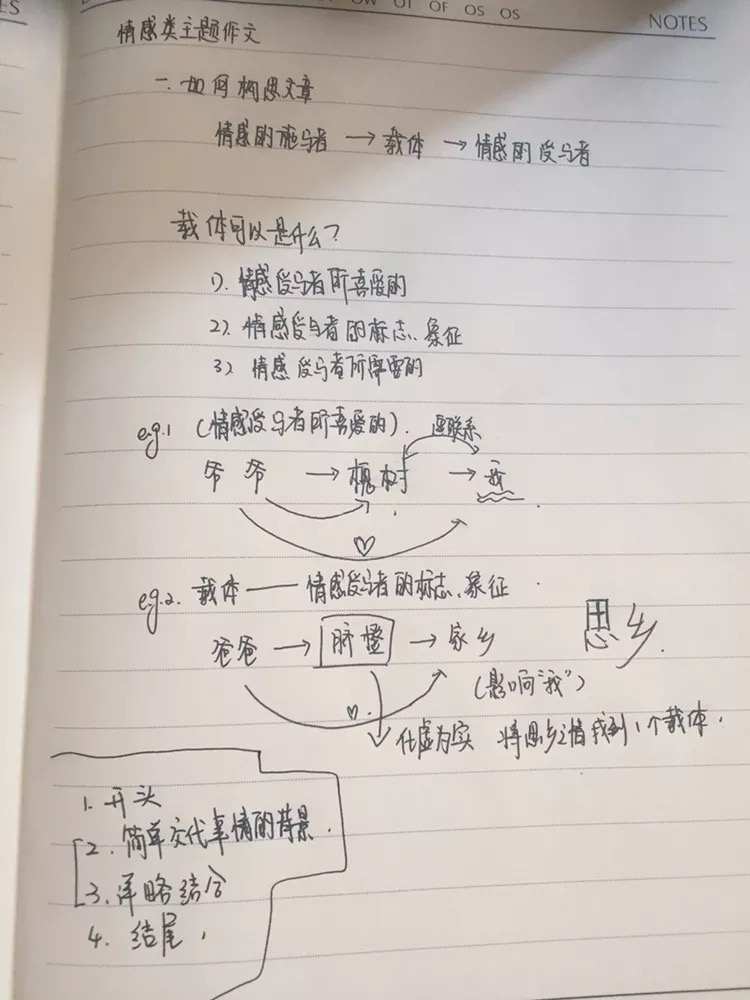 OW OT OF OS OS
NOTES
ES
情感类主题作文
一.如何构思文章
情感的施与者 → 载体 → 情感的受与者
载体可以是什么?
1). 情感受与者所喜爱的
2). 情感受与者的标志、象征
3) 情感受与者所需要的
e.g.1 (情感受与者所喜爱的).
联系
爷爷 → 槐树 → 我
e.g.2. 载体——情感受与者的标志、象征.
爸爸 → 脐橙 → 家乡
思乡.
(影响"我")
化虚为实 将思乡之情找到1个载体.
1. 开头
2. 简单交代事情的背景.
3. 详略结合
4. 结尾.